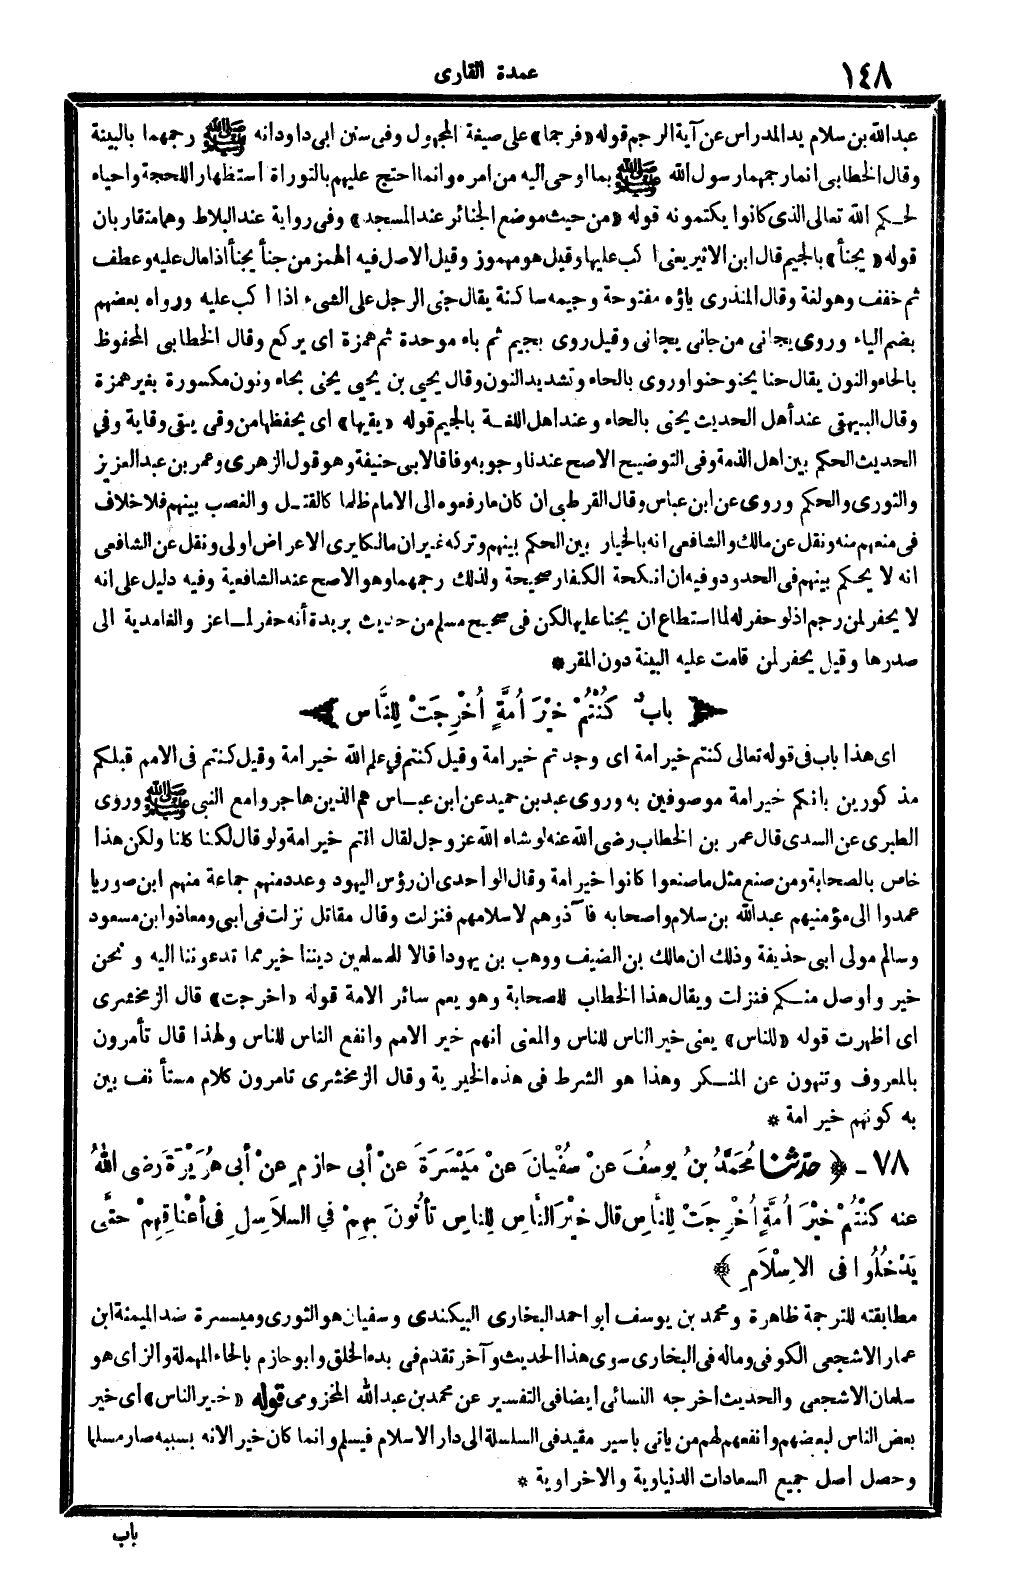 ١٤٨
عمدة القارى
عبدالله بن سلام يد المدراس عن آية الرجم قوله «فرجما» على صيغة المجهول وفى سنن ابى داود انه ﷺ رجمهما بالبينة
وقال الخطابى انما رجمهما رسول الله ﷺ بما اوحى اليه من امره وانما احتج عليهم بالتوراة استظهارا للحجة واحياء
لحكم الله تعالى الذى كانوا يكتمونه قوله «من حيث موضع الجنائز عند المسجد» وفى رواية عند البلاط وهما متقاربان
قوله «يجنأ» بالجيم قال ابن الاثير يعنى اكب عليها وقيل هو مهموز وقيل الاصل فيه الهمز من جنأ يجنأ اذا مال عليه وعطف
ثم خفف وهو لغة وقال المنذرى ياؤه مفتوحة وجيمه ساكنة يقال جنى الرجل على الشىء اذا اكب عليه ورواه بعضهم
بضم الياء وروى يجانى من جانى يجانى وقيل روى بجيم ثم باء موحدة ثم همزة اى يركع وقال الخطابى المحفوظ
بالحاء والنون يقال حنا يحنو حنوا وروى بالحاء وتشديد النون وقال يحيى بن يحيى يحنى بحاء ونون مكسورة بغير همزة
وقال البيهقى عند أهل الحديث يحنى بالحاء وعند اهل اللغة بالجيم قوله «يقيها» اى يحفظها من وقى يقى وقاية وفي
الحديث الحكم بين اهل الذمة وفى التوضيح الاصح عندنا وجوبه وفاقا لابى حنيفة وهو قول الزهرى وعمر بن عبد العزيز
والثورى والحكم وروى عن ابن عباس وقال القرطبى ان كان ما رفعوه الى الامام ظلما كالقتل والغصب بينهم فلا خلاف
فى منعهم منه ونقل عن مالك والشافعى انه بالخيار بين الحكم بينهم وتركه غير ان مالكا يرى الاعراض اولى ونقل عن الشافعى
انه لا يحكم بينهم فى الحدود وفيه ان انكحة الكفار صحيحة ولذلك رجمهما وهو الاصح عند الشافعية وفيه دليل على انه
لا يحفر لمن رجم اذ لو حفر له لما استطاع ان يجنا عليها لكن فى صحيح مسلم من حديث بريدة أنه حفر لماعز والغامدية الى
صدرها وقيل يحفر لمن قامت عليه البينة دون المقر *
﴿ بابٌ كُنْتُمْ خَيْرَ أُمَّةٍ أُخْرِجَتْ لِلنَّاسِ ﴾
اى هذا باب فى قوله تعالى كنتم خير امة اى وجدتم خير امة وقيل كنتم في علم الله خير امة وقيل كنتم فى الامم قبلكم
مذكورين بانكم خير امة موصوفين به وروى عبد بن حميد عن ابن عباس هم الذين هاجروا مع النبى ﷺ وروى
الطبرى عن السدى قال عمر بن الخطاب رضى الله عنه لو شاء الله عز وجل لقال انتم خير امة ولو قال لكنا كلنا ولكن هذا
خاص بالصحابة ومن صنع مثل ما صنعوا كانوا خير امة وقال الواحدى ان رؤس اليهود وعدد منهم جماعة منهم ابن صوريا
عمدوا الى مؤمنيهم عبدالله بن سلام واصحابه فآذوهم لاسلامهم فنزلت وقال مقاتل نزلت فى ابى ومعاذ وابن مسعود
وسالم مولى ابى حذيفة وذلك ان مالك بن الضيف ووهب بن يهودا قالا للمسلمين ديننا خير مما تدعوننا اليه ونحن
خير واوصل منكم فنزلت ويقال هذا الخطاب للصحابة وهو يعم سائر الامة قوله «اخرجت» قال الزمخشرى
اى اظهرت قوله «للناس» يعنى خير الناس للناس والمعنى انهم خير الامم وانفع الناس للناس ولهذا قال تأمرون
بالمعروف وتنهون عن المنكر وهذا هو الشرط فى هذه الخيرية وقال الزمخشرى تامرون كلام مستأنف بين
به كونهم خير امة *
٧٨ - ﴿ حَدَّثَنَا مُحَمَّدُ بنُ يوسُفَ عَنْ سُفْيَانَ عَنْ مَيْسَرَةَ عَنْ أبى حازِمٍ عَنْ أبى هُرَيْرَةَ رضى اللهُ
عنه كُنْتُمْ خَيْرَ أُمَّةٍ أُخْرِجَتْ لِلنَّاسِ قال خَيْرَ النَّاسِ لِلناسِ تأْتُونَ بِهِمْ فى السلاسِلِ فى أعْناقِهِمْ حتَّى
يَدْخُلُوا فى الاِسْلَامِ ﴾
مطابقته للترجمة ظاهرة ومحمد بن يوسف أبو احمد البخارى البيكندى وسفيان هو الثورى وميسرة ضد الميمنة ابن
عمار الاشجعى الكوفى وماله فى البخارى سوى هذا الحديث وآخر تقدم فى بدء الخلق وابو حازم بالحاء المهملة والزاى هو
سلمان الاشجعى والحديث اخرجه النسائى ايضا فى التفسير عن محمد بن عبدالله المخزومى قوله «خير الناس» اى خير
بعض الناس لبعضهم وانفعهم لهم من يأتى باسير مقيد فى السلسلة الى دار الاسلام فيسلم وانما كان خيرا لانه بسببه صار مسلما
وحصل اصل جميع السعادات الدنياوية والاخراوية *
باب